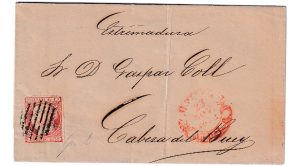 Extremadura
S. D. Gaspar Coll
Cabeza del Buey